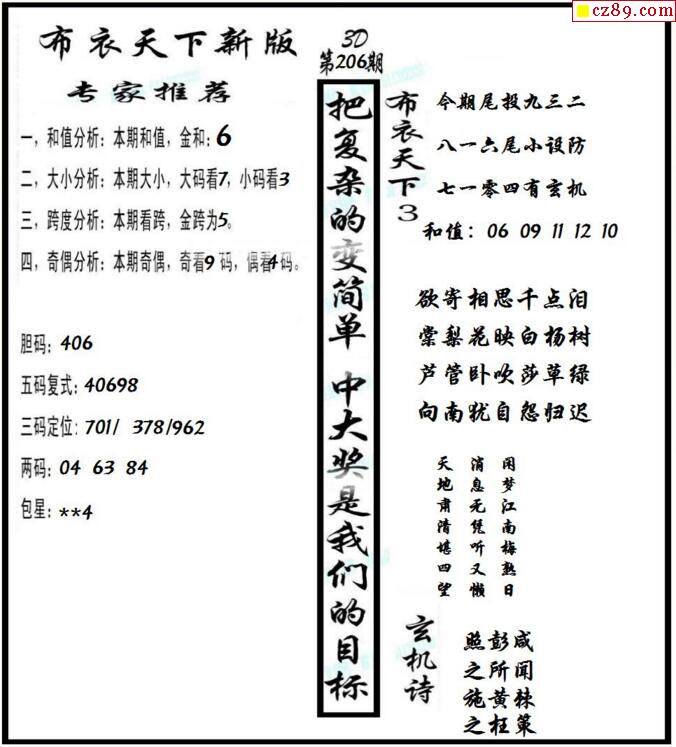 cz89.com
布衣天下新版
3D
第206期
专家推荐
一，和值分析：本期和值，金和：6
二，大小分析：本期大小，大码看7，小码看3
三，跨度分析：本期看跨，金跨为5。
四，奇偶分析：本期奇偶，奇看9码，偶看4码。
胆码：406
五码复式：40698
三码定位：701/ 378/962
两码：04 63 84
包星：**4
把复杂的变简单 中大奖是我们的目标
布衣天下3
今期尾投九三二
八一六尾小设防
七一零四有玄机
和值：06 09 11 12 10
欲寄相思千点泪
棠梨花映白杨树
芦管卧吹莎草绿
向南犹自怨归迟
闲梦江南梅熟日
消息无凭听又懒
天地肃清堪四望
玄机诗
咸闻棘策
彭所黄枉
照之施之